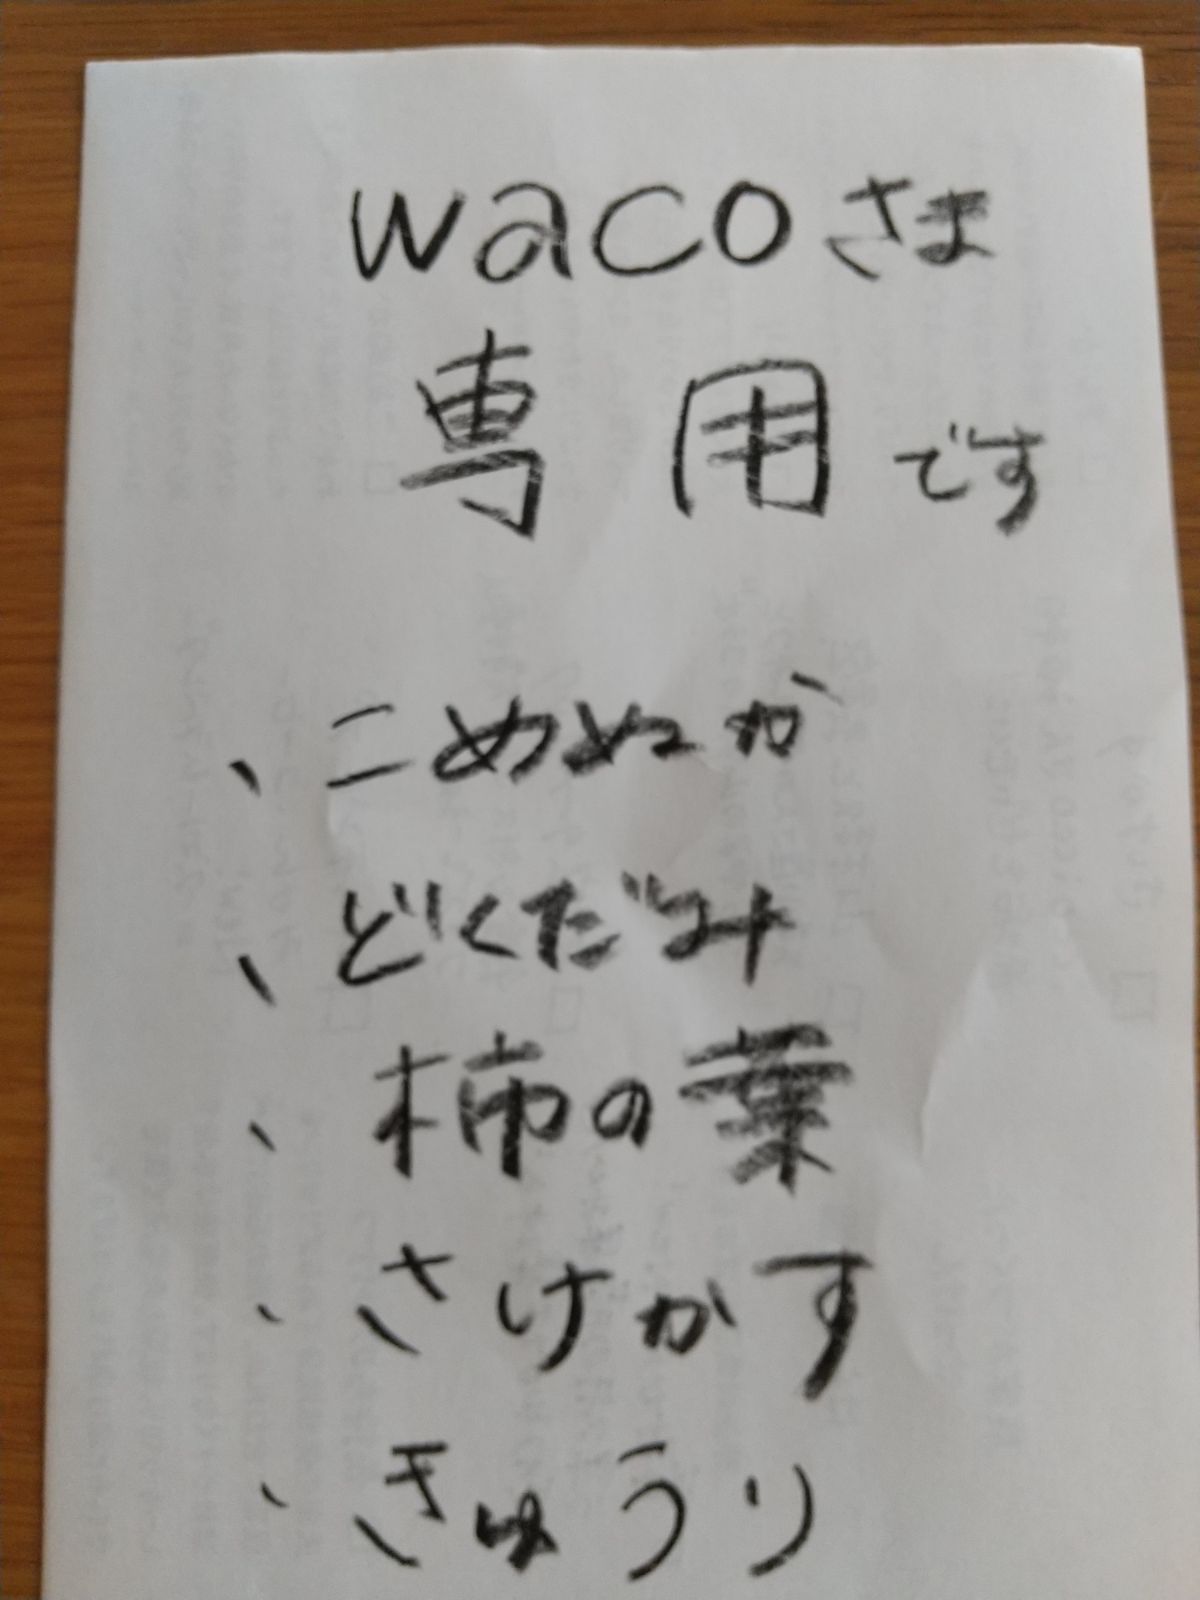 wacoさま
専用です
、こめぬか
、どくだみ
、柿の葉
、さけかす
、きゅうり